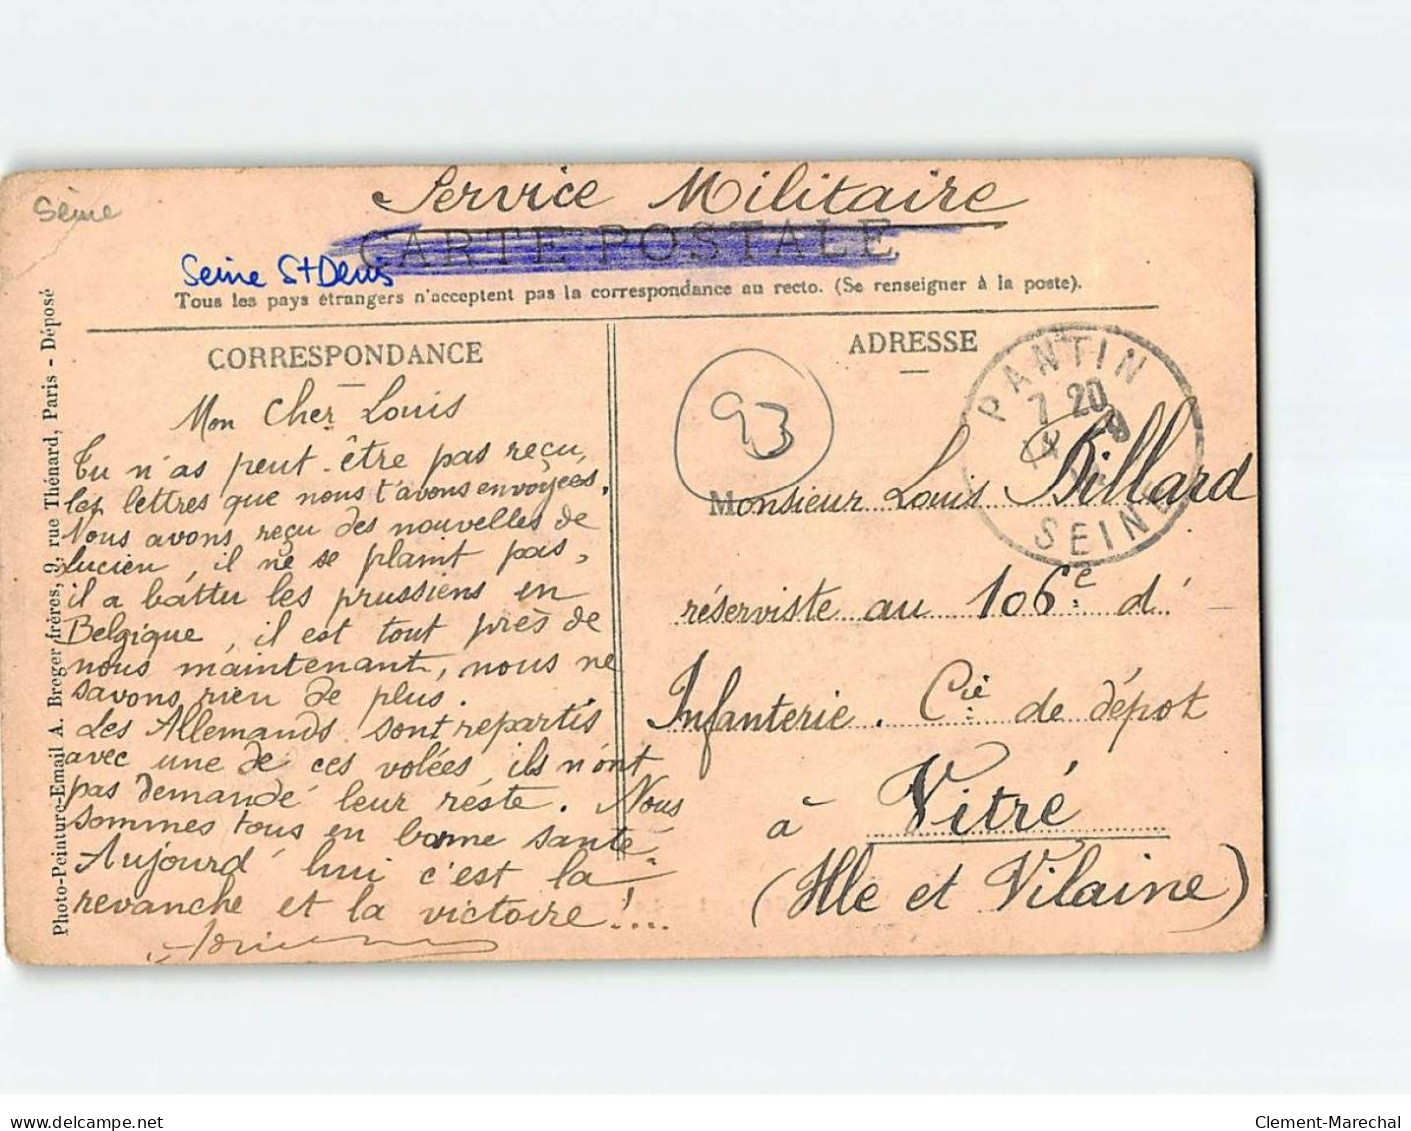 Service Militaire
Seine
CARTE POSTALE
Seine St Denis
Tous les pays étrangers n'acceptent pas la correspondance au recto. (Se renseigner à la poste).
CORRESPONDANCE
Mon Cher Louis
Tu n'as peut-être pas reçu
les lettres que nous t'avons envoyées.
Nous avons reçu des nouvelles de
Lucien, il ne se plaint pas,
il a battu les prussiens en
Belgique, il est tout près de
nous maintenant, nous ne
savons rien de plus.
Les Allemands sont repartis
avec une de ces volées, ils n'ont
pas demandé leur reste. Nous
sommes tous en bonne santé.
Aujourd'hui c'est la
revanche et la victoire !...
Photo-Peinture-Email A. Breger frères, 9, rue Thénard, Paris - Déposé
ADRESSE
93
PANTIN
7 20
14 9
SEINE
Monsieur Louis Billard
réserviste au 106e d'
Infanterie. Cie de dépot
à Vitré
(Ille et Vilaine)
delcampe.net
Clement-Marechal